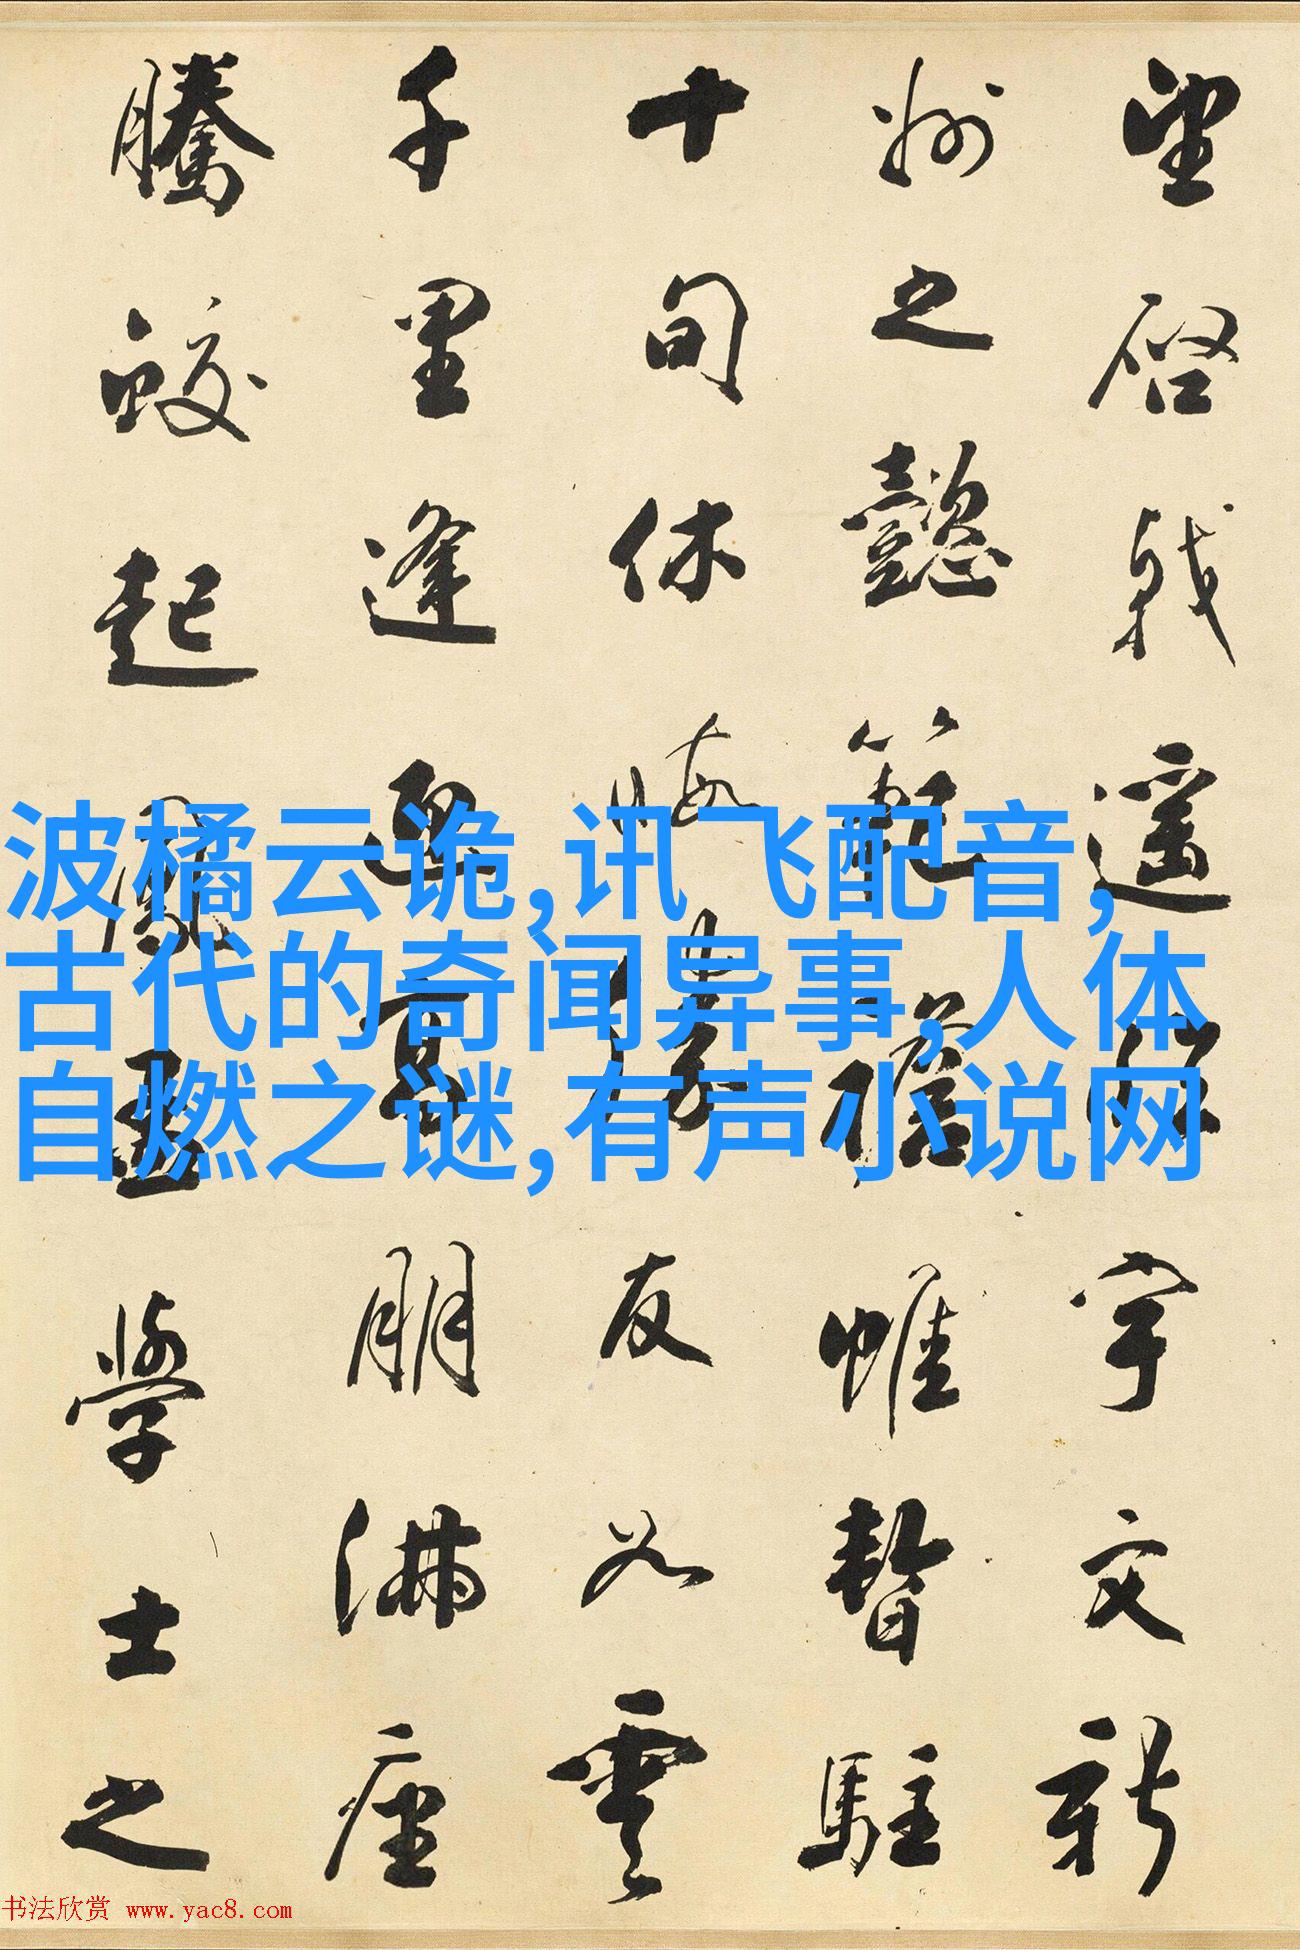 望啓戟遥臨宇文新
州之懿範襜帷暫駐
十旬休暇勝友如雲
千里逢迎高朋滿座
騰蛟起鳳孟學士之
波橘云诡,讯飞配音,
古代的奇闻异事,人体
自燃之谜,有声小说网
书法欣赏 www.yac8.com